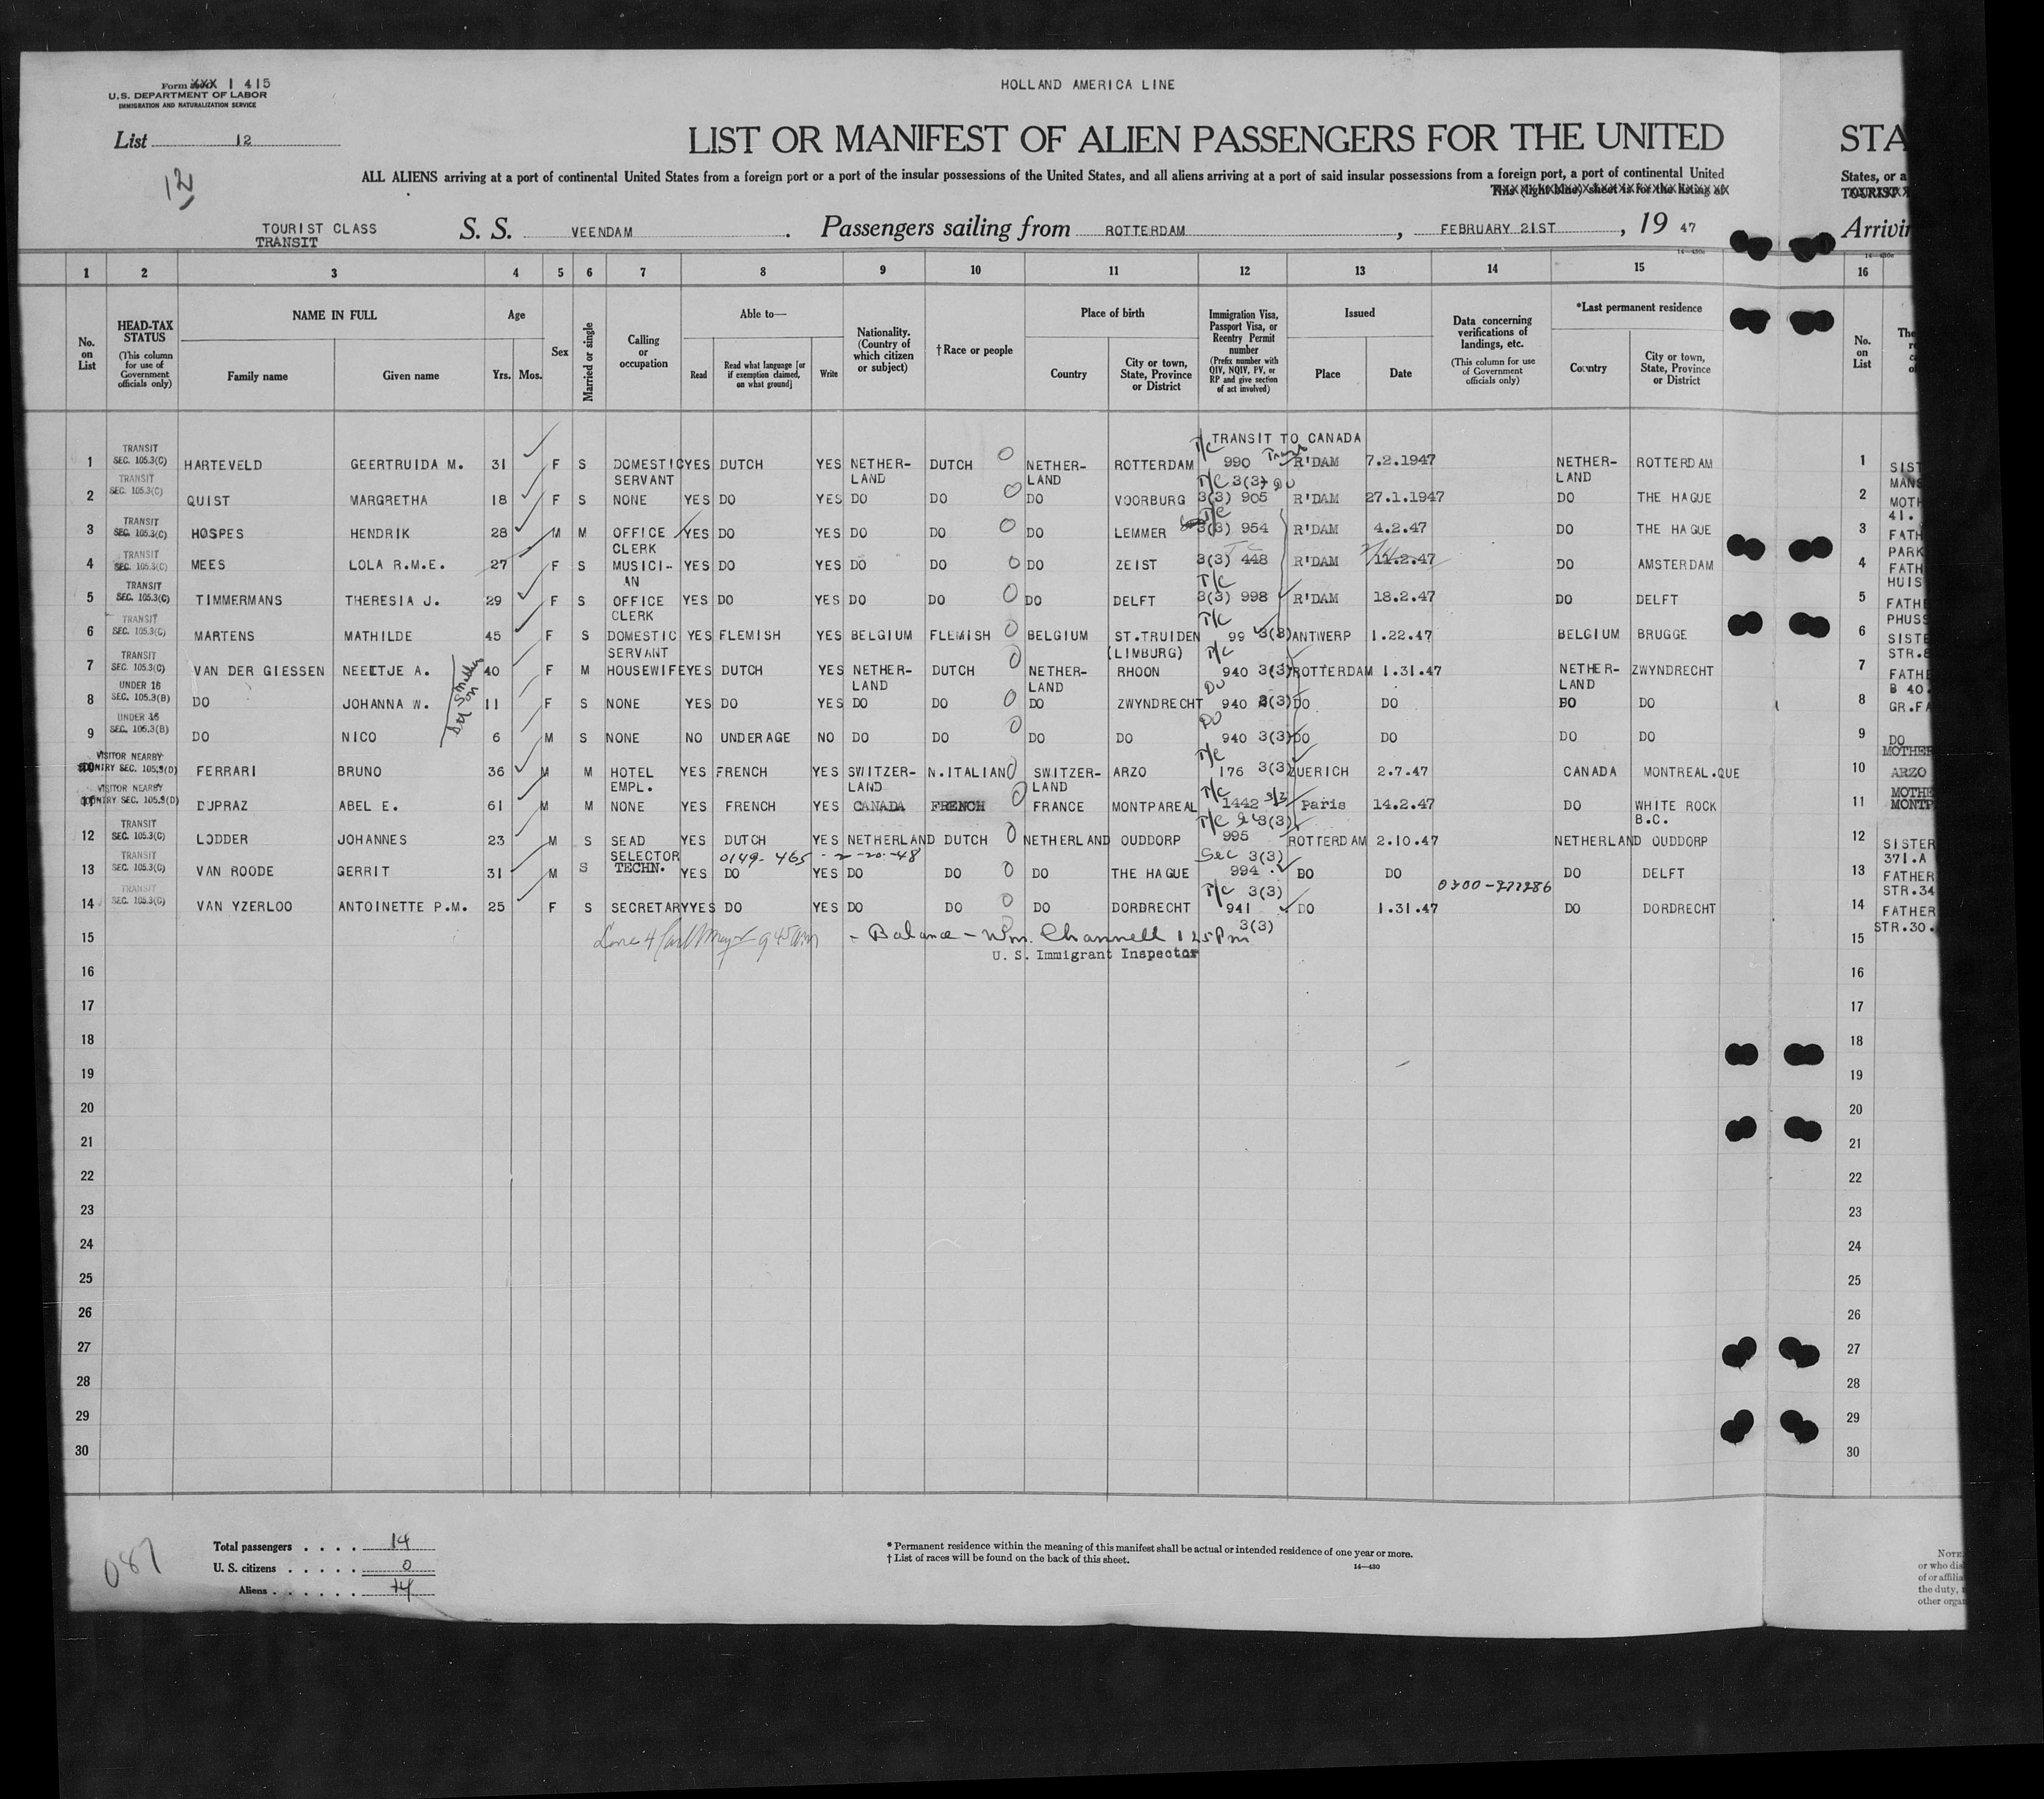 Form XXX I 415
U.S. DEPARTMENT OF LABOR
IMMIGRATION AND NATURALIZATION SERVICE
HOLLAND AMERICA LINE
List 12
12
LIST OR MANIFEST OF ALIEN PASSENGERS FOR THE UNITED STA
ALL ALIENS arriving at a port of continental United States from a foreign port or a port of the insular possessions of the United States, and all aliens arriving at a port of said insular possessions from a foreign port, a port of continental United States, or a
This (light blue) sheet is for the listing of TOURIST
TOURIST CLASS
TRANSIT
S. S. VEENDAM. Passengers sailing from ROTTERDAM, FEBRUARY 21ST, 19 47 Arrivin
1 2 3 4 5 6 7 8 9 10 11 12 13 14 15 16
No. on List
HEAD-TAX STATUS (This column for use of Government officials only)
NAME IN FULL Family name Given name
Age Yrs. Mos.
Sex
Married or single
Calling or occupation
Able to— Read Read what language [or if exemption claimed, on what ground] Write
Nationality. (Country of which citizen or subject)
†Race or people
Place of birth Country City or town, State, Province or District
Immigration Visa, Passport Visa, or Reentry Permit number (Prefix number with QIV, NQIV, PV, or RP and give section of act involved)
Issued Place Date
Data concerning verifications of landings, etc. (This column for use of Government officials only)
*Last permanent residence Country City or town, State, Province or District
No. on List
TRANSIT TO CANADA
1 TRANSIT SEC. 105.3(C) HARTEVELD GEERTRUIDA M. 31 F S DOMESTIC SERVANT YES DUTCH YES NETHER-LAND DUTCH NETHER-LAND ROTTERDAM T/C 990 R'DAM 7.2.1947 NETHER-LAND ROTTERDAM 1 SIST MANS
2 TRANSIT SEC. 105.3(C) QUIST MARGRETHA 18 F S NONE YES DO YES DO DO DO VOORBURG T/C 3(3) DO 3(3) 905 R'DAM 27.1.1947 DO THE HAGUE 2 MOTH 41.
3 TRANSIT SEC. 105.3(C) HOSPES HENDRIK 28 M M OFFICE CLERK YES DO YES DO DO DO LEMMER T/C 3(3) 954 R'DAM 4.2.47 DO THE HAGUE 3 FATH PARK
4 TRANSIT SEC. 105.3(C) MEES LOLA R.M.E. 27 F S MUSICI-AN YES DO YES DO DO DO ZEIST TC 3(3) 448 R'DAM 11.2.47 DO AMSTERDAM 4 FATH HUIS
5 TRANSIT SEC. 105.3(C) TIMMERMANS THERESIA J. 29 F S OFFICE CLERK YES DO YES DO DO DO DELFT T/C 3(3) 998 R'DAM 18.2.47 DO DELFT 5 FATHE PHUSS
6 TRANSIT SEC. 105.3(C) MARTENS MATHILDE 45 F S DOMESTIC SERVANT YES FLEMISH YES BELGIUM FLEMISH BELGIUM ST.TRUIDEN (LIMBURG) T/C 99 3(3) ANTWERP 1.22.47 BELGIUM BRUGGE 6 SISTE STR.8
7 TRANSIT SEC. 105.3(C) VAN DER GIESSEN NEELTJE A. 40 F M HOUSEWIFE YES DUTCH YES NETHER-LAND DUTCH NETHER-LAND RHOON T/C 940 3(3) ROTTERDAM 1.31.47 NETHER-LAND ZWYNDRECHT 7 FATHE B 40.
8 UNDER 16 SEC. 105.3(B) DO JOHANNA W. 11 F S NONE YES DO YES DO DO DO ZWYNDRECHT DO 940 3(3) DO DO DO DO 8 GR.FA
9 UNDER 16 SEC. 105.3(B) DO NICO 6 M S NONE NO UNDERAGE NO DO DO DO DO DO 940 3(3) DO DO DO DO 9 DO
10 VISITOR NEARBY COUNTRY SEC. 105.3(D) FERRARI BRUNO 36 M M HOTEL EMPL. YES FRENCH YES SWITZER-LAND N.ITALIAN SWITZER-LAND ARZO T/C 176 3(3) ZUERICH 2.7.47 CANADA MONTREAL.QUE 10 MOTHER ARZO
11 VISITOR NEARBY COUNTRY SEC. 105.3(D) DUPRAZ ABEL E. 61 M M NONE YES FRENCH YES CANADA FRENCH FRANCE MONTPAREAL T/C 1442 3/3 Paris 14.2.47 DO WHITE ROCK B.C. 11 MOTHE MONTP
12 TRANSIT SEC. 105.3(C) LODDER JOHANNES 23 M S SEAD SELECTOR YES DUTCH YES NETHERLAND DUTCH NETHERLAND OUDDORP T/C 3(3) 995 ROTTERDAM 2.10.47 NETHERLAND OUDDORP 12 SISTER 371.A
0149-465 -2-20-48
13 TRANSIT SEC. 105.3(C) VAN ROODE GERRIT 31 M S TECHN. YES DO YES DO DO DO THE HAGUE Sec 3(3) 994 DO DO DO DELFT 13 FATHER STR.34
0300-277286
14 TRANSIT SEC. 105.3(C) VAN YZERLOO ANTOINETTE P.M. 25 F S SECRETARY YES DO YES DO DO DO DORDRECHT T/C 3(3) 941 3(3) DO 1.31.47 DO DORDRECHT 14 FATHER STR.30.
15 Line 4 945 am - Balance - Wm. Channell 125 Pm 15
U. S. Immigrant Inspector
16 16
17 17
18 18
19 19
20 20
21 21
22 22
23 23
24 24
25 25
26 26
27 27
28 28
29 29
30 30
087
Total passengers . . . . 14
U. S. citizens . . . . . 0
Aliens . . . . . . 14
* Permanent residence within the meaning of this manifest shall be actual or intended residence of one year or more.
† List of races will be found on the back of this sheet.
14—430
NOTE.
or who dis
of or affilia
the duty,
other organ